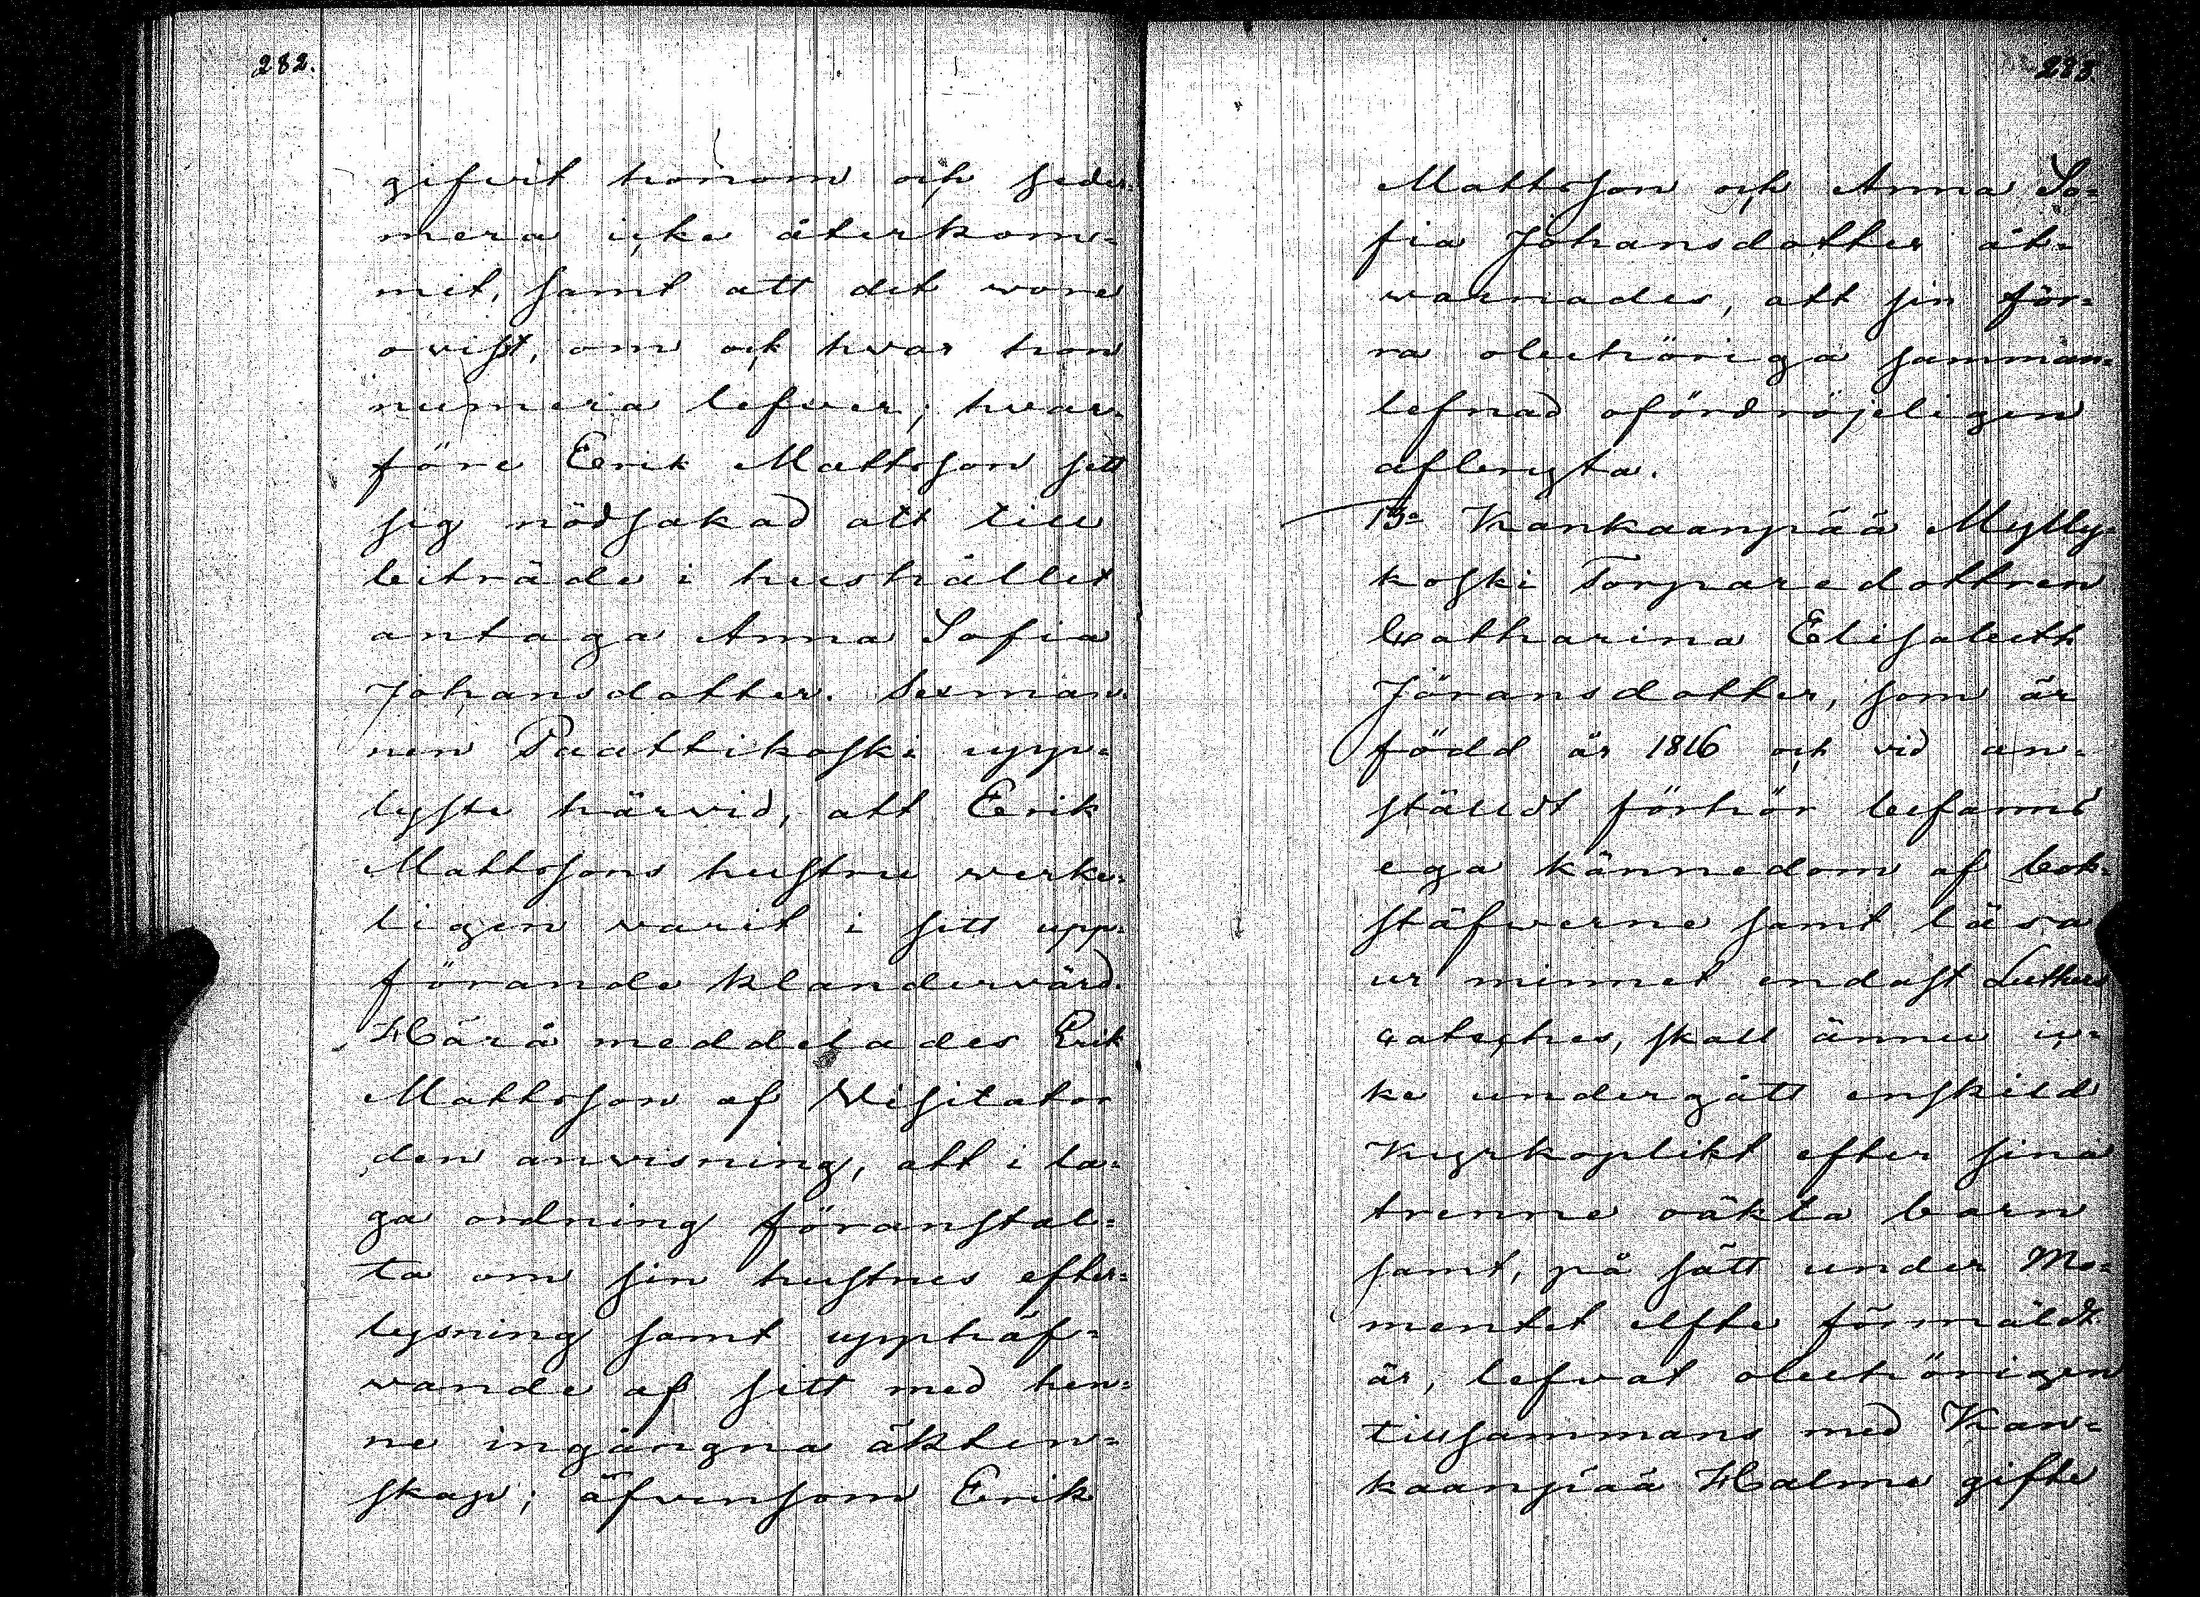 282.
gifvit honom och seder=
mera icke återkom=
mit, samt att det vore
ovisst, om och hvar hon
numera lefver; hvar=
före Erik Mattsson sett
sig nödsakad att till
biträde i hushållet
antaga Anna Sofia
Johansdotter. Sexman=
nen Paattikoski upp=
lyste härvid, att Erik
Mattssons hustru verke=
ligen varit i sitt upp=
förande klandervärd.
Härå meddelades Erik
Mattsson af Visitator
den anvisning, att i la=
ga ordning föranstal=
ta om sin hustrus efter=
lysning samt upphäf=
vande af sitt med hen=
ne ingångna äkten=
skap; äfvensom Erik
283.
Mattsson och Anna So=
fia Johansdotter åt=
varnades, att sin för=
ra obehöriga samman=
lefnad ofördröjeligen
aflägsta.
13o Kankaanpää Mylly=
koski Torparedottren
Catharina Elisabeth
Göransdotter, som är
född år 1816 och vid an=
ställdt förhör befanns
ega kännedom af bok=
stäfverne samt läsa
ur minnet endast Luthers
Cateches, skall ännu ic=
ke undergått enskild
Kyrkoplikt efter sina
trenne oäkta barn
samt, på sätt under Mo=
mentet elfte förmäldt
är, lefvat obehörigen
tillsammans med Kan=
kaanpää Halme gifte